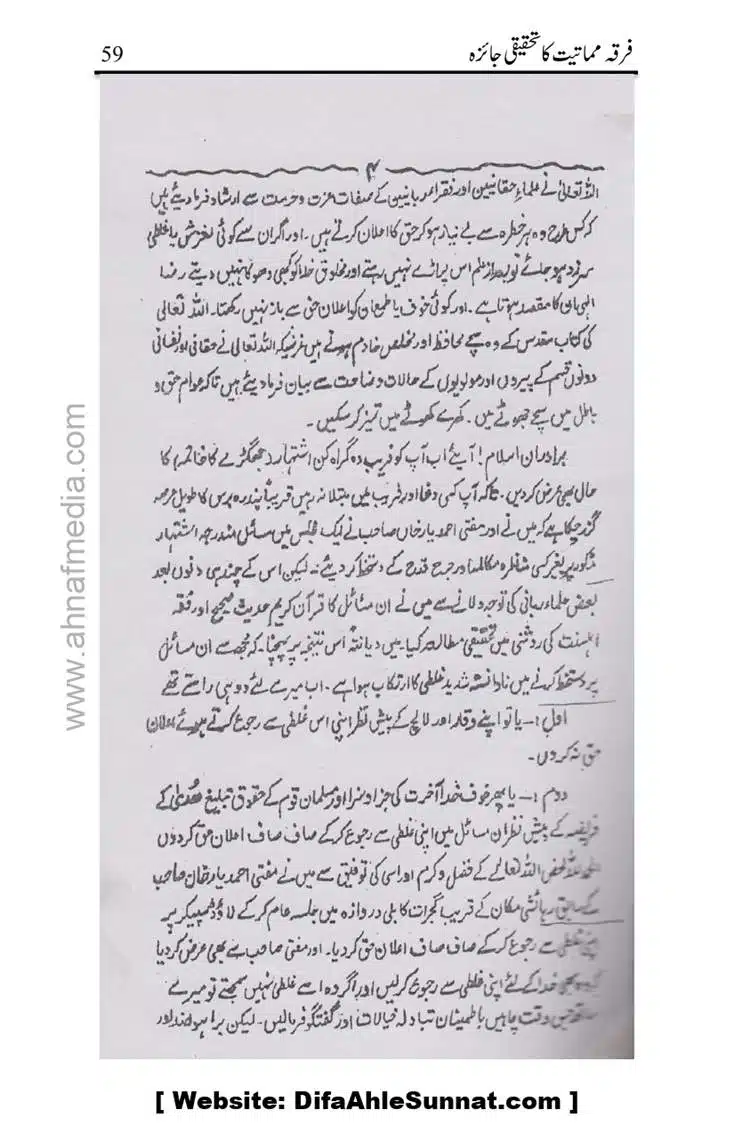 59
فرقہ مماتیت کا تحقیقی جائزہ
۴
اللہ تعالیٰ نے علماءِ حقانیین اور فقراء ربانیین کے صفات عزت و حرمت سے ارشاد فرما دیئے ہیں
کہ کس طرح وہ ہر خطرہ سے بے نیاز ہو کر حق کا اعلان کرتے ہیں۔ اور اگر ان سے کوئی لغزش یا غلطی
سرزد ہو جائے تو بعد از علم اس پر اڑے نہیں رہتے اور مخلوق خدا کو کبھی دھوکا نہیں دیتے رضا
الٰہی ان کا مقصد ہوتا ہے۔ اور کوئی خوف یا طمع ان کو اعلان حق سے باز نہیں رکھتا۔ اللہ تعالیٰ
کی کتاب مقدس کے وہ سچے محافظ اور مخلص خادم ہوتے ہیں غرضیکہ اللہ تعالیٰ نے حقانی اور نفسانی
دونوں قسم کے پیروں اور مولویوں کے حالات وضاحت سے بیان فرما دیئے ہیں تاکہ عوام حق و
باطل میں سچے جھوٹے میں۔ کھرے کھوٹے میں تمیز کر سکیں۔
برادران اسلام! آیئے اب آپ کو فریب دہ گمراہ کن اشتہار (جھگڑے کا خاتمہ) کا
حال بھی عرض کر دیں۔ تاکہ آپ کسی دغا اور فریب میں مبتلا نہ رہیں قریباً پندرہ برس کا طویل عرصہ
گزر چکا ہے کہ میں نے اور مفتی احمد یار خاں صاحب نے ایک مجلس میں مسائل مندرجہ اشتہار
مذکور پر بغیر کسی مناظرہ مکالمہ اور جرح قدح کے دستخط کر دیئے۔ لیکن اس کے چند ہی دنوں بعد
بعض علماء ربانی کی توجہ دلانے سے میں نے ان مسائل کا قرآن کریم حدیث صحیح اور فقہ
اہلسنت کی روشنی میں تحقیقی مطالعہ کیا۔ میں دیانتہً اس نتیجہ پر پہنچا۔ کہ مجھ سے ان مسائل
پر دستخط کرنے میں نادانستہ شدید غلطی کا ارتکاب ہوا ہے۔ اب میرے لئے دو ہی راستے تھے
اول:- یا تو اپنے وقار اور لالچ کے پیش نظر اپنی اس غلطی سے رجوع کرتے ہوئے اعلان
حق نہ کر دں۔
دوم:- یا پھر خوف خدا آخرت کی جزا و سزا اور مسلمان قوم کے حقوق تبلیغ ھُدیٰ کے
فریضہ کے پیش نظر ان مسائل میں اپنی غلطی سے رجوع کر کے صاف صاف اعلان حق کر دوں
الحمد للہ محض اللہ تعالےٰ کے فضل و کرم اور اسی کی توفیق سے میں نے مفتی احمد یار خان صاحب
کے سابق رہائشی مکان کے قریب گجرات کابلی دروازہ میں جلسہ عام کر کے لاؤڈ سپیکر پر
اپنی غلطی سے رجوع کر کے صاف صاف اعلان حق کر دیا۔ اور مفتی صاحب سے بھی عرض کر دیا
کہ وہ بھی خدا کے لئے اپنی غلطی سے رجوع کر لیں اور اگر وہ اسے غلطی نہیں سمجھتے تو میرے
ساتھ جس وقت چاہیں باطمینان تبادلہ خیالات اور گفتگو فرمالیں۔ لیکن برا ہو ضد اور
www.ahnafmedia.com
[ Website: DifaAhleSunnat.com ]